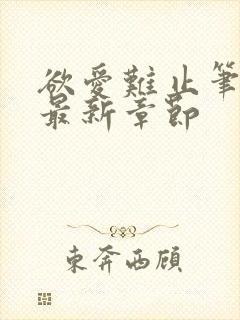 欲爱難止筆
最新章節
東奔西顧